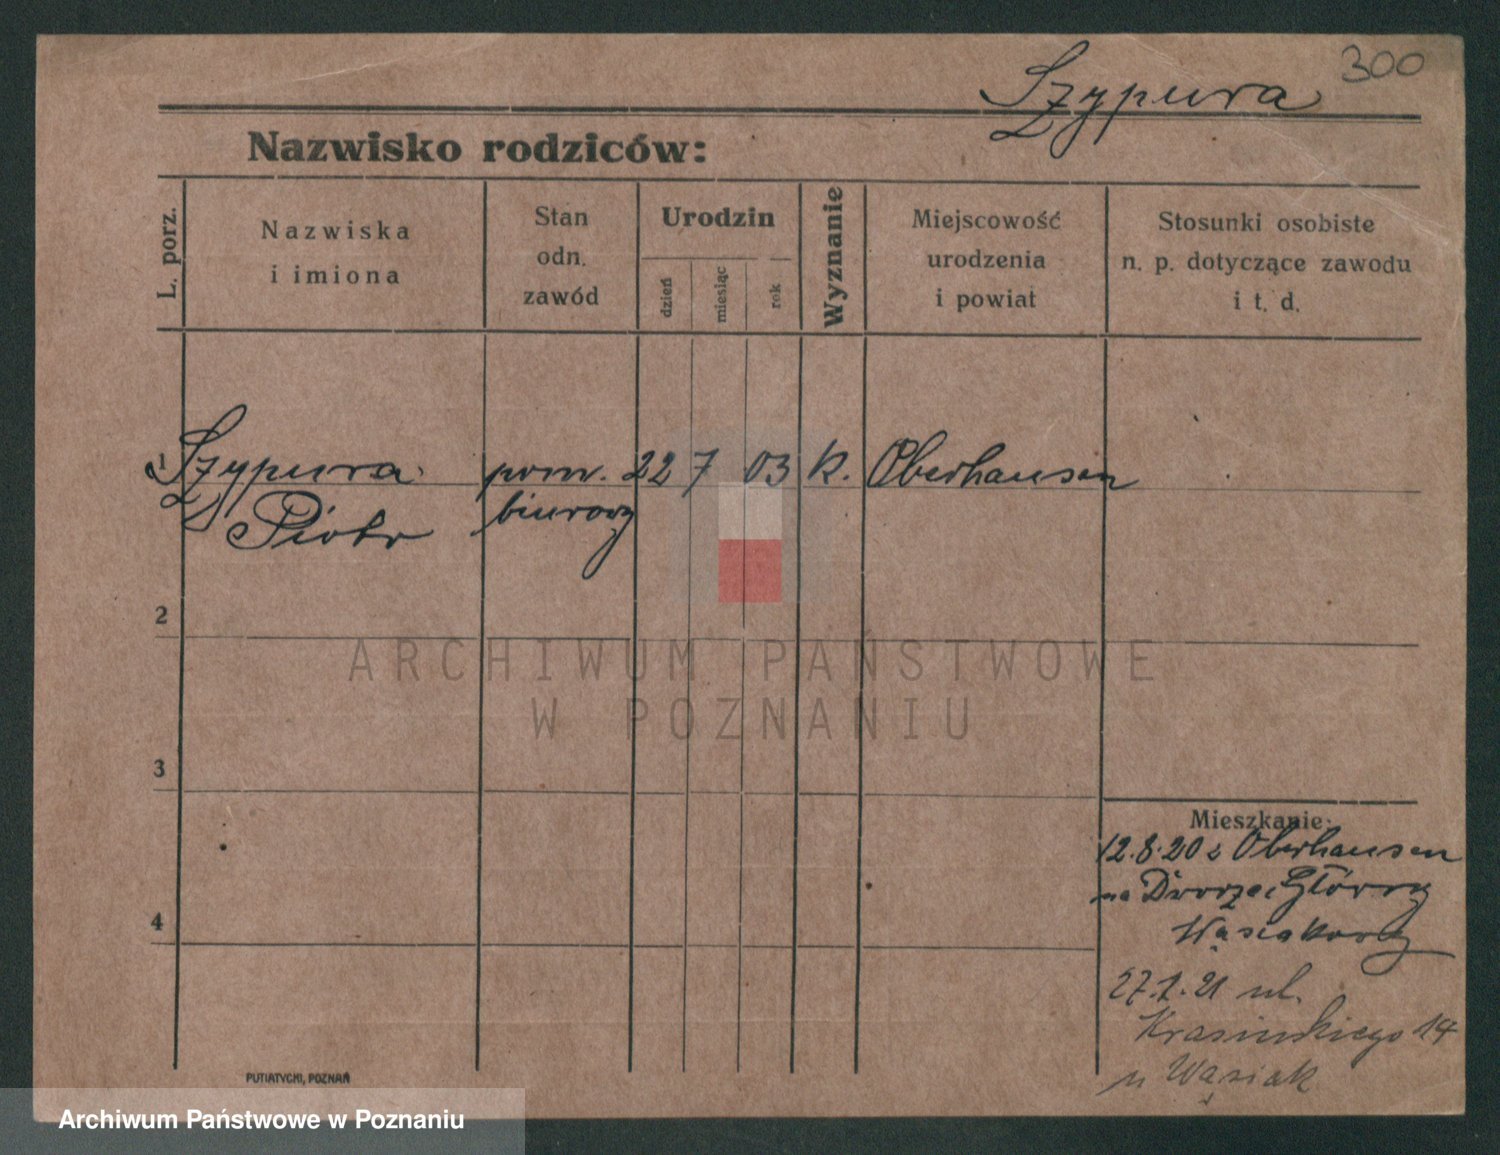 300
Szypura
Nazwisko rodziców:
L. porz.
Nazwiska
i imiona
Stan
odn.
zawód
Urodzin
dzień
miesiąc
rok
Wyznanie
Miejscowość
urodzenia
i powiat
Stosunki osobiste
n. p. dotyczące zawodu
i t. d.
1 Szypura pom. 22 7 03 k. Oberhausen
Piotr biurowy
2
3
4
Mieszkanie:
12.8.20 z Oberhausen
na Dworzec Główny
27.1.21 ul.
Krasińskiego 14
u Wąsiak
PUTIATYCKI, POZNAŃ
ARCHIWUM PAŃSTWOWE
W POZNANIU
Archiwum Państwowe w Poznaniu